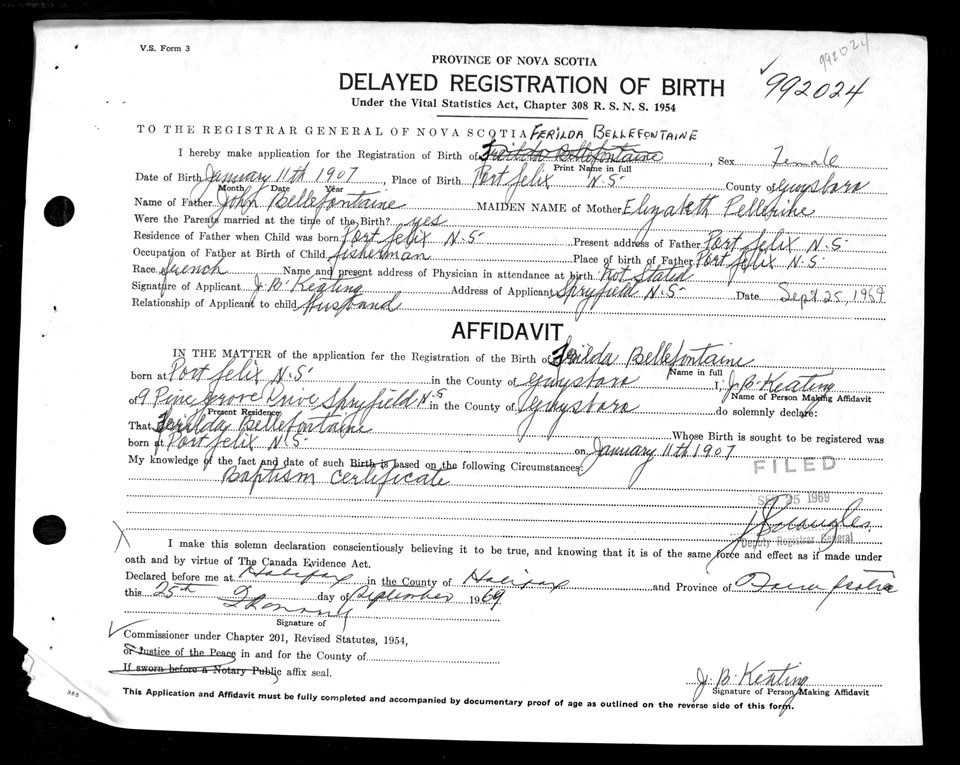 V.S. Form 3
992024
PROVINCE OF NOVA SCOTIA
DELAYED REGISTRATION OF BIRTH
992024
Under the Vital Statistics Act, Chapter 308 R. S. N. S. 1954
TO THE REGISTRAR GENERAL OF NOVA SCOTIA FERILDA BELLEFONTAINE
I hereby make application for the Registration of Birth of Bellefontaine, Sex Female
Print Name in full
Date of Birth January 11th 1907, Place of Birth Port Felix N.S. County of Guysboro
Month Date Year
Name of Father John Bellefontaine MAIDEN NAME of Mother Elizabeth Pellerine
Were the Parents married at the time of the Birth? yes
Residence of Father when Child was born Port Felix N.S. Present address of Father Port Felix N.S.
Occupation of Father at Birth of Child fisherman Place of birth of Father Port Felix N.S.
Race French Name and present address of Physician in attendance at birth Not Stated
Signature of Applicant J. B. Keating Address of Applicant Spryfield N.S. Date Sept 25, 1969
Relationship of Applicant to child Husband
AFFIDAVIT
IN THE MATTER of the application for the Registration of the Birth of Ferilda Bellefontaine
Name in full
born at Port Felix N.S. in the County of Guysboro I, J. B. Keating
Name of Person Making Affidavit
of 9 Pine Grove Drive Spryfield N.S in the County of Guysboro do solemnly declare:
Present Residence
That Ferilda Bellefontaine Whose Birth is sought to be registered was
born at Port Felix N.S. on January 11th 1907
My knowledge of the fact and date of such Birth is based on the following Circumstances:
Baptism Certificate
FILED
SEP 25 1969
Deputy Registrar General
I make this solemn declaration conscientiously believing it to be true, and knowing that it is of the same force and effect as if made under
oath and by virtue of The Canada Evidence Act.
Declared before me at Halifax in the County of Halifax and Province of Nova Scotia
this 25th day of September 1969
Signature of
Commissioner under Chapter 201, Revised Statutes, 1954,
or Justice of the Peace in and for the County of
If sworn before a Notary Public affix seal.
J. B. Keating
Signature of Person Making Affidavit
385
This Application and Affidavit must be fully completed and accompanied by documentary proof of age as outlined on the reverse side of this form.